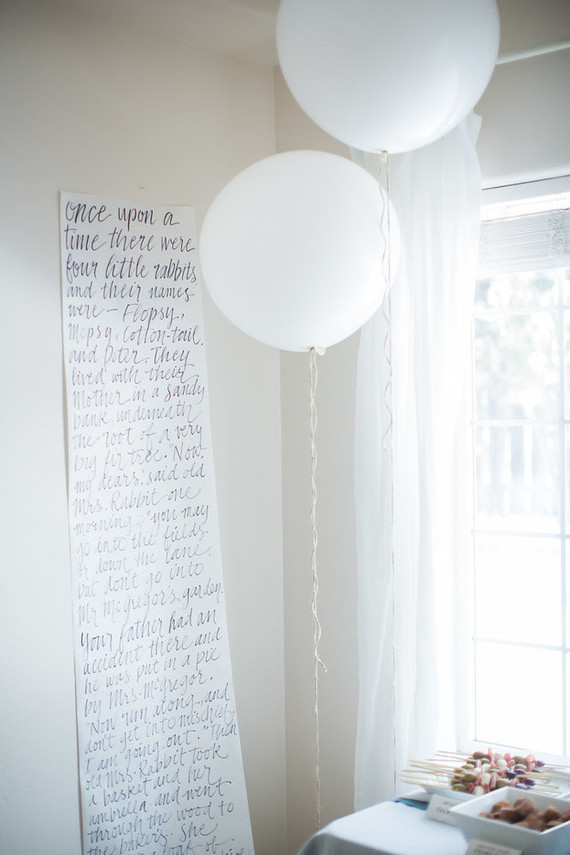 once upon a
time there were
four little rabbits
and their names
were – Flopsy,
Mopsy, Cotton-tail
and Peter. They
lived with their
Mother in a sandy
bank underneath
the root of a very
big fir tree. "Now
my dears," said old
Mrs. Rabbit one
morning, "you may
go into the fields
or down the lane,
but don't go into
Mr McGregor's garden.
Your father had an
accident there and
he was put in a pie
by Mrs. McGregor.
"Now run along, and
don't get into mischief.
I am going out." Then
old Mrs. Rabbit took
a basket and her
umbrella and went
through the wood to
the bakers. She
loaf of